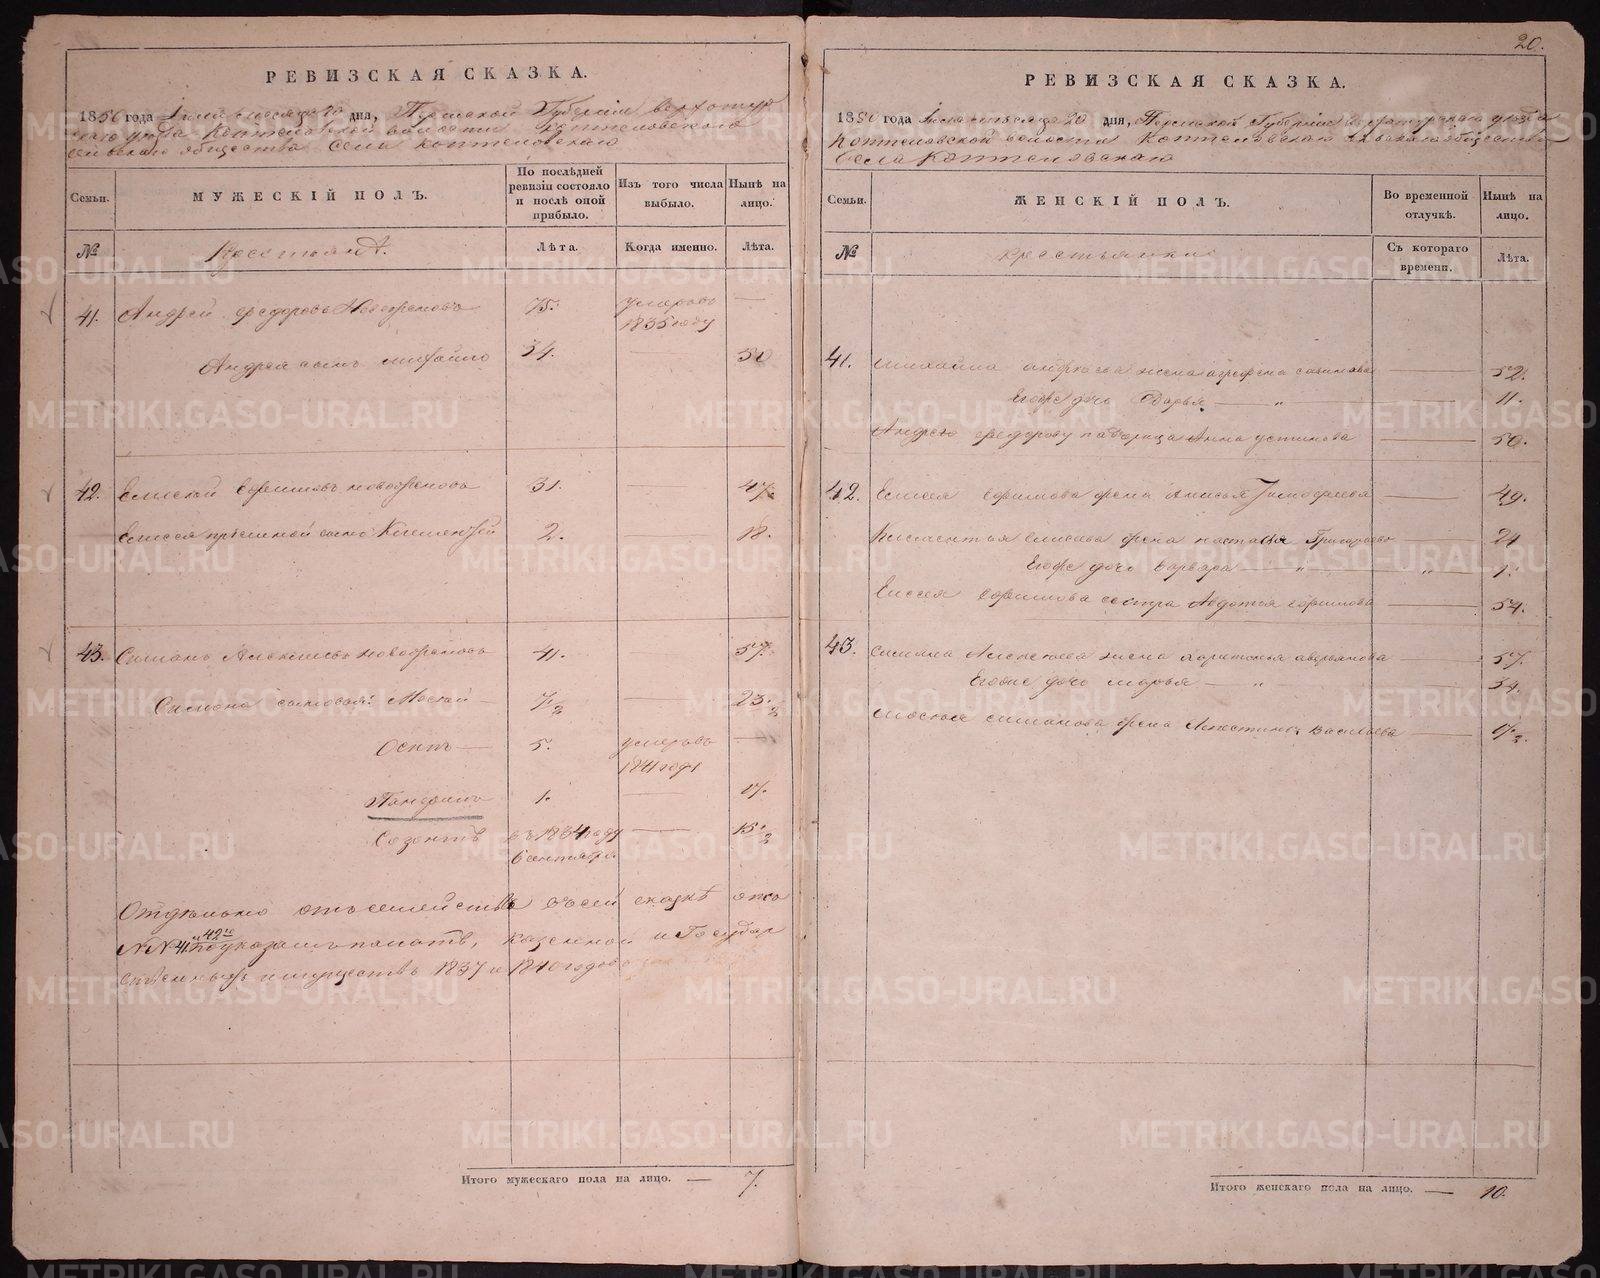 20.
РЕВИЗСКАЯ СКАЗКА.
1850 года Іюня месяца 20 дня, Пермской Губерніи Верхотур
скаго уезда Коптеловской волости Коптеловскаго
сельскаго общества Села Коптеловскаго
Семьи.
МУЖЕСКІЙ ПОЛЪ.
По послѣдней ревизіи состояло и послѣ оной прибыло.
Изъ того числа выбыло.
Нынѣ на лицо.
№
Крестьянъ.
Лѣта.
Когда именно.
Лѣта.
41. Андрей Федоровъ 75. умеръ въ 1835 году —
Андрея сынъ Михайло 34. — 50
42. Елисей Ефимовъ 31. — 47.
Елисея пріемной сынъ 2. — 18.
43. Симанъ Алексеевъ 41. — 57.
Симана сыновья: Мосей — 7 1/2 — 23 1/2
Осипъ — 5. умеръ въ 1841 году —
Панфилъ 1. — 17.
Созонтъ въ 1834 году сентября — 15 1/2
Отдельно отъ семейства въ сей сказкѣ
№№ 41 и 42й по указамъ палатъ, казенной и Государ
ственныхъ имуществъ 1837 и 1840 годовъ
Итого мужескаго пола на лицо. — 7.
РЕВИЗСКАЯ СКАЗКА.
1850 года Іюня месяца 20 дня, Пермской Губерніи Верхотурскаго уезда
Коптеловской волости Коптеловскаго сельскаго общества
Села Коптеловскаго
Семьи.
ЖЕНСКІЙ ПОЛЪ.
Во временной отлучкѣ.
Нынѣ на лицо.
№
Крестьянки
Съ котораго времени.
Лѣта.
41. Михайла Андреева жена Агрефена Савинова — 52.
Егоже дочь Дарья — " — 11.
Андрею Федорову Анна Устинова — 50.
42. Елисея Ефимова жена Анисья Тимофеева — 49.
Климентья Елисева жена Настасья Григорьева — 21
Егоже дочь Варвара " — " — 1.
Елисея Ефимова сестра Авдотья Ефимова — 54.
43. Симана Алексеева жена Харитонья Аверьянова — 57.
Егоже дочь Марья — " — 34.
Мосея Симанова жена Васильева —
Итого женскаго пола на лицо. — 10.
METRIKI.GASO-URAL.RU